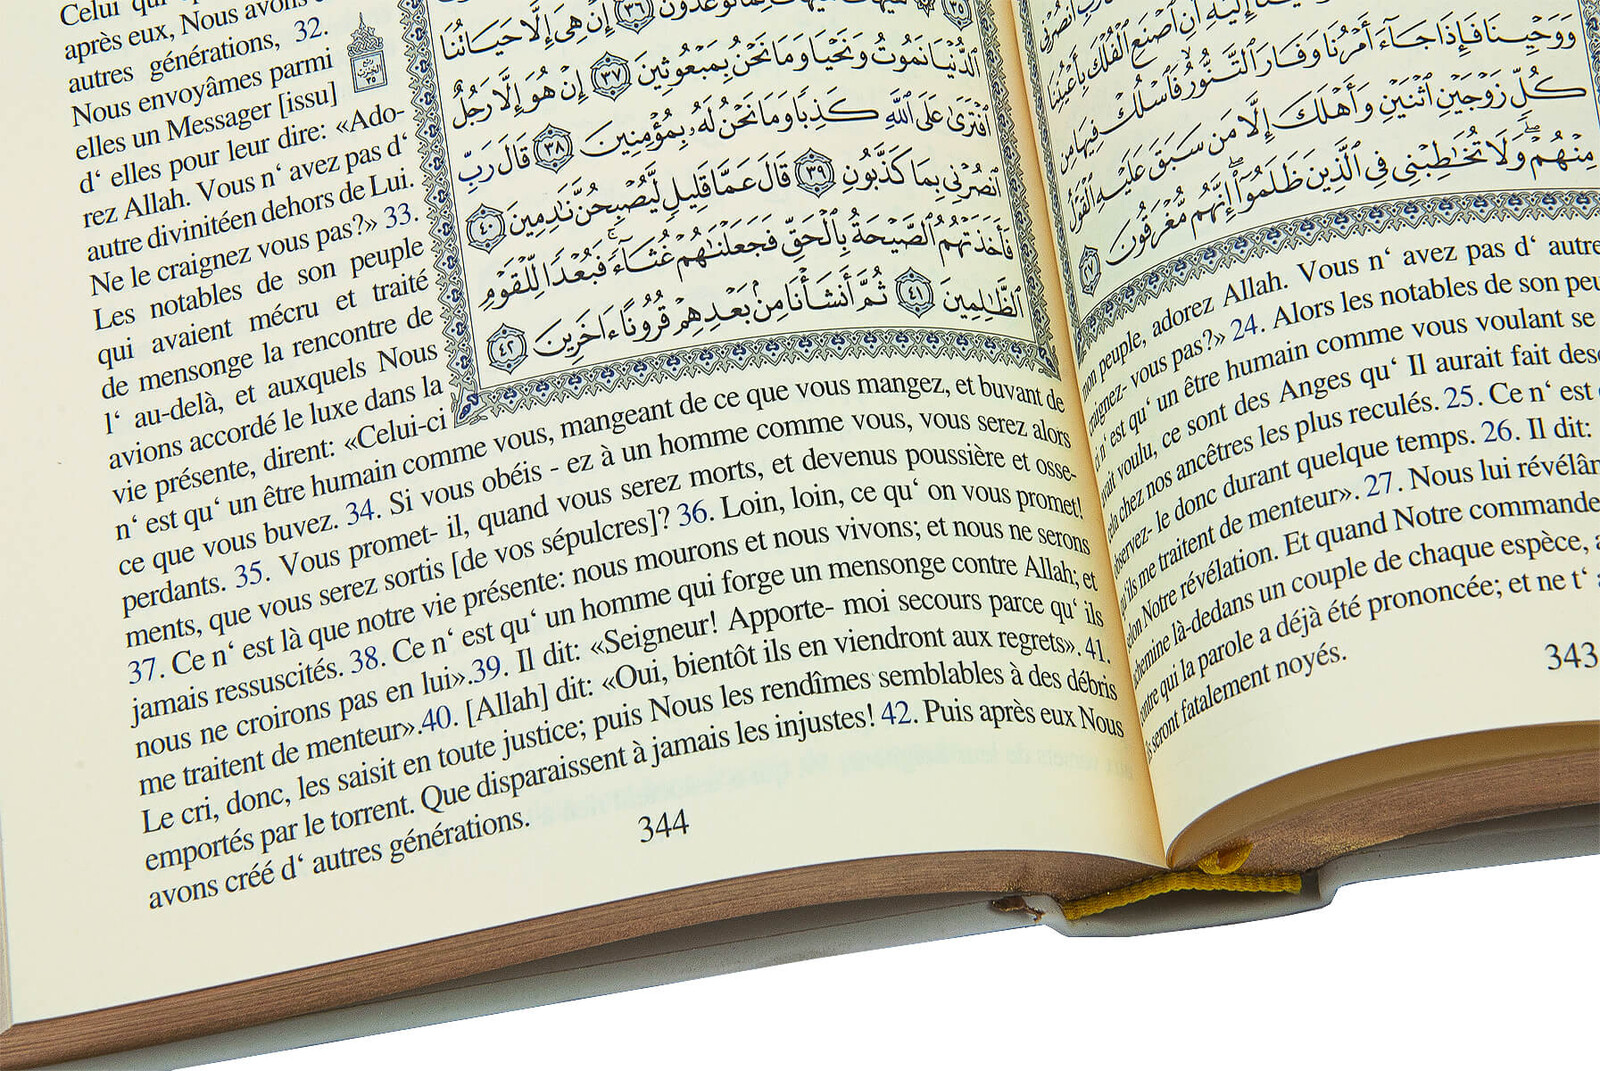 Celui qui
après eux, Nous avons
autres générations, 32.
Nous envoyâmes parmi
elles un Messager [issu]
d‘ elles pour leur dire: «Ado-
rez Allah. Vous n‘ avez pas d‘
autre divinitéen dehors de Lui.
Ne le craignez vous pas?» 33.
Les notables de son peuple
qui avaient mécru et traité
de mensonge la rencontre de
l‘ au-delà, et auxquels Nous
avions accordé le luxe dans la
vie présente, dirent: «Celui-ci
n‘ est qu‘ un être humain comme vous, mangeant de ce que vous mangez, et buvant de
ce que vous buvez. 34. Si vous obéis - ez à un homme comme vous, vous serez alors
perdants. 35. Vous promet- il, quand vous serez morts, et devenus poussière et osse-
ments, que vous serez sortis [de vos sépulcres]? 36. Loin, loin, ce qu‘ on vous promet!
37. Ce n‘ est là que notre vie présente: nous mourons et nous vivons; et nous ne serons
jamais ressuscités. 38. Ce n‘ est qu‘ un homme qui forge un mensonge contre Allah; et
nous ne croirons pas en lui».39. Il dit: «Seigneur! Apporte- moi secours parce qu‘ ils
me traitent de menteur».40. [Allah] dit: «Oui, bientôt ils en viendront aux regrets». 41.
Le cri, donc, les saisit en toute justice; puis Nous les rendîmes semblables à des débris
emportés par le torrent. Que disparaissent à jamais les injustes! 42. Puis après eux Nous
avons créé d‘ autres générations.
344
٣٥ هَيْهَاتَ هَيْهَاتَ لِمَا تُوعَدُونَ ٣٦ إِنْ هِيَ إِلَّا حَيَاتُنَا
ٱلدُّنْيَا نَمُوتُ وَنَحْيَا وَمَا نَحْنُ بِمَبْعُوثِينَ ٣٧ إِنْ هُوَ إِلَّا رَجُلٌ
ٱفْتَرَىٰ عَلَى ٱللَّهِ كَذِبًا وَمَا نَحْنُ لَهُۥ بِمُؤْمِنِينَ ٣٨ قَالَ رَبِّ
ٱنصُرْنِي بِمَا كَذَّبُونِ ٣٩ قَالَ عَمَّا قَلِيلٍ لَّيُصْبِحُنَّ نَٰدِمِينَ ٤٠
فَأَخَذَتْهُمُ ٱلصَّيْحَةُ بِٱلْحَقِّ فَجَعَلْنَٰهُمْ غُثَآءً ۚ فَبُعْدًا لِّلْقَوْمِ
ٱلظَّٰلِمِينَ ٤١ ثُمَّ أَنشَأْنَا مِنۢ بَعْدِهِمْ قُرُونًا ءَاخَرِينَ ٤٢
إِلَيْهِ أَنِ ٱصْنَعِ ٱلْفُلْكَ بِأَعْيُنِنَا
وَوَحْيِنَا فَإِذَا جَآءَ أَمْرُنَا وَفَارَ ٱلتَّنُّورُ ۙ فَٱسْلُكْ فِيهَا مِن
كُلٍّ زَوْجَيْنِ ٱثْنَيْنِ وَأَهْلَكَ إِلَّا مَن سَبَقَ عَلَيْهِ ٱلْقَوْلُ
مِنْهُمْ ۖ وَلَا تُخَٰطِبْنِي فِي ٱلَّذِينَ ظَلَمُوٓا۟ ۖ إِنَّهُم مُّغْرَقُونَ ٢٧
mon peuple, adorez Allah. Vous n‘ avez pas d‘ autre
vous pas?» 24. Alors les notables de son
n‘ est qu‘ un être humain comme vous voulant se
voulu, ce sont des Anges qu‘ Il aurait fait
cela chez nos ancêtres les plus reculés. 25. Ce n‘ est
observez- le donc durant quelque temps. 26. Il dit:
qu‘ils me traitent de menteur». 27. Nous lui
selon Notre révélation. Et quand Notre
là-dedans un couple de chaque espèce,
contre qui la parole a déjà été prononcée; et ne t‘
ils seront fatalement noyés.
343